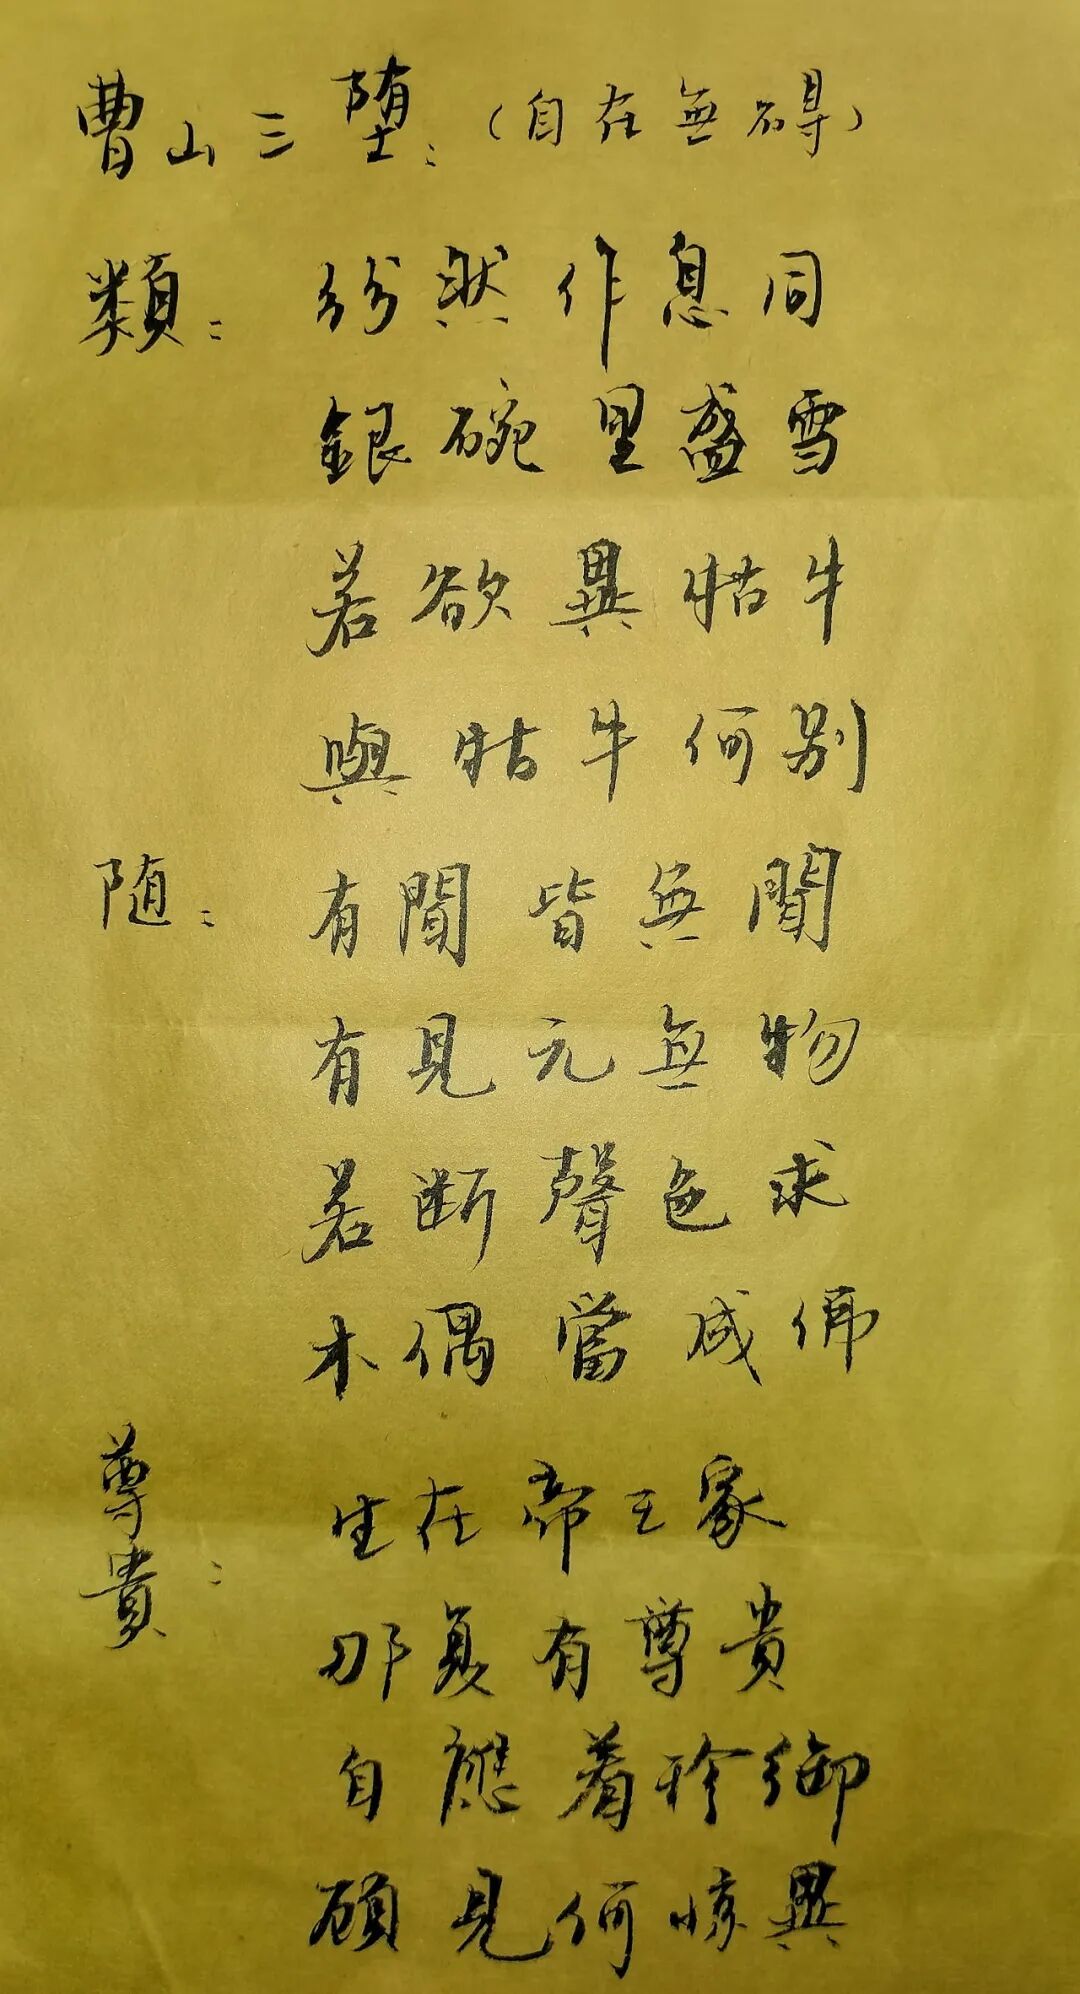 曹山三堕:(自在無碍)
類: 紛然作息同
銀碗里盛雪
若欲異牯牛
與牯牛何别
随: 有聞皆無聞
有見元無物
若断聲色求
木偶當成佛
尊貴: 生在帝王家
那复有尊貴
自應着珍御
顧見何惊異